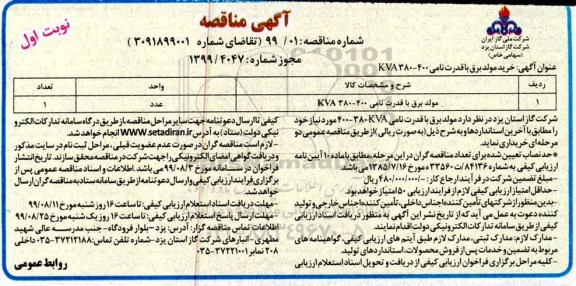 نوبت اول
آگهی مناقصه
شماره مناقصه: ۰۱/ ۹۹ (تقاضای شماره ۳۰۹۱۸۹۹۰۰۱)
مجوز شماره: ۱۳۹۹/۴۰۴۷
شرکت ملی گاز ایران
شرکت گاز استان یزد
(سهامی خاص)
عنوان آگهی: خرید مولد برق با قدرت نامی ۴۰۰-۳۸۰ KVA
ردیف شرح و مشخصات کالا واحد تعداد
۱ مولد برق با قدرت نامی ۴۰۰-۳۸۰ KVA عدد ۱
شرکت گاز استان یزد در نظر دارد مولد برق با قدرت نامی ۴۰۰-۳۸۰ KVA مورد نیاز خود
را مطابق با آخرین استانداردها و به شرح ذیل (به صورت ریالی) از طریق مناقصه عمومی دو
مرحله ای خریداری نماید.
*حد نصاب تعیین شده برای تعداد مناقصه گران در این مرحله مطابق با ماده ۱۰ آیین نامه
ارزیابی کیفی به شماره ۸۴۱۳۶/ت ۳۳۵۶۰ مورخ ۱۳۸۵/۷/۱۶ می باشد.
-مبلغ تضمین شرکت در فرآیند ارجاع کار: /۴۸۰/۰۰۰/۰۰۰ ریال
-حداقل امتیاز ارزیابی کیفی لازم از فرایند ارزیابی ۵۰ امتیاز خواهد بود.
بدین منظور از شرکتهای تأمین کننده اجناس داخلی، تأمین کننده اجناس خارجی و تولید
کننده دعوت به عمل می آید که از تاریخ نشر این آگهی به منظور دریافت اسناد ارزیابی
کیفی از طریق سامانه تدارکات الکترونیکی دولت اقدام نمایند.
-مدارک لازم: مدارک ثبتی، مدارک لازم طبق آیتم های ارزیابی کیفی، گواهینامه های
مربوط به تضمین و خدمات پس از فروش محصولات، استانداردهای تولید.
-کلیه مراحل برگزاری فراخوان ارزیابی کیفی از دریافت و تحویل اسناد استعلام ارزیابی
کیفی تا ارسال دعوتنامه جهت سایر مراحل مناقصه از طریق درگاه سامانه تدارکات الکترو
نیکی دولت (ستاد) به آدرس WWW.setadiran.ir انجام خواهد شد.
-لازم است مناقصه گران در صورت عدم عضویت قبلی، مراحل ثبت نام در سایت مذکور
و دریافت گواهی امضای الکترونیکی را جهت شرکت در مناقصه محقق سازند. تاریخ انتشار
فراخوان در سامانه مورخ ۹۹/۰۸/۳ می باشد. اطلاعات و اسناد مناقصه عمومی پس از
برگزاری فرایند ارزیابی کیفی و ارسال دعوتنامه از طریق سامانه ستاد به مناقصه گران ارسال
خواهد شد.
-مهلت دریافت اسناد استعلام ارزیابی کیفی: تا ساعت ۱۶ روز شنبه مورخ ۹۹/۰۸/۱۰
-مهلت ارسال پاسخ استعلام ارزیابی کیفی: تا ساعت ۱۶ روز یک شنبه مورخ ۹۹/۰۸/۲۵
اطلاعات تماس مناقصه گزار: آدرس: یزد -بلوار فرودگاه- جنب مدرسه عالی شهید
مطهری- انبارهای شرکت گاز استان یزد -شماره تلفن تماس: ۳۷۲۱۲۱۸۸-۰۳۵ داخلی
۲۰۸ نمابر ۳۷۲۲۱۰۰۱-۰۳۵
روابط عمومی